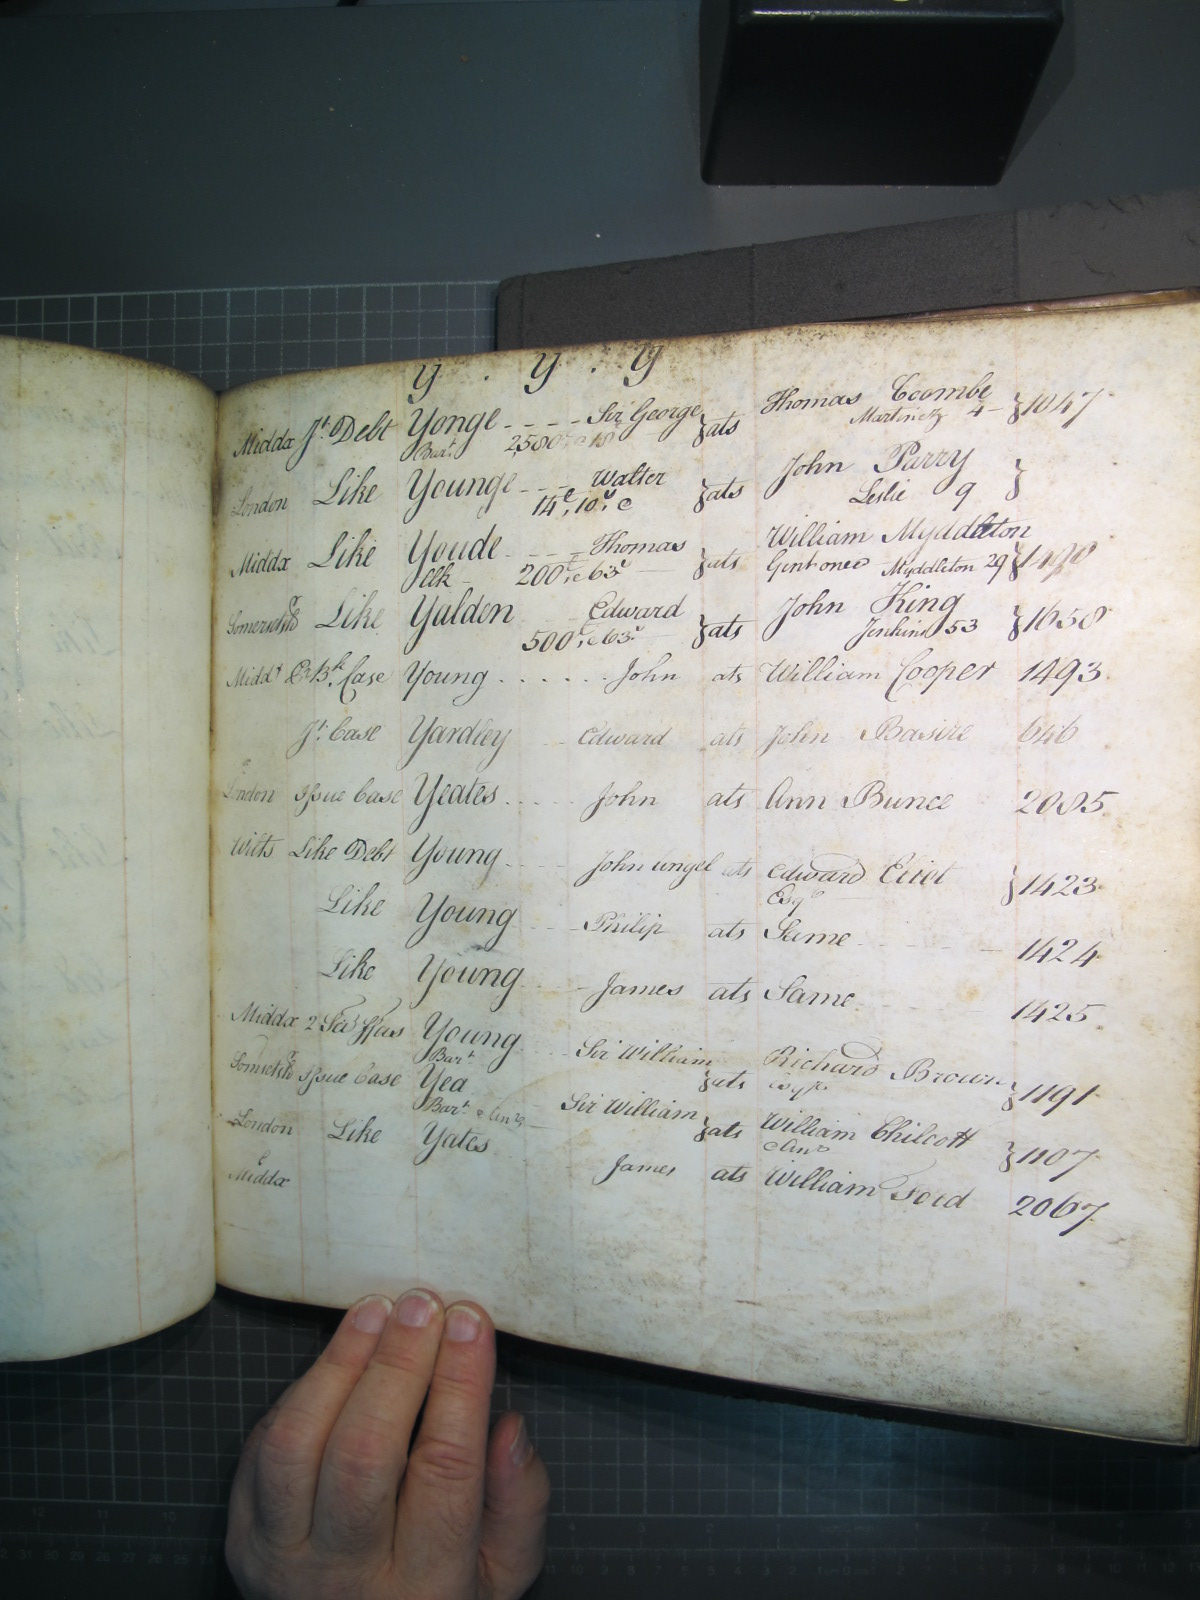 Y . Y . Y
Middx Jt. Debt Yonge - - - - Sir George } ats Thomas Coombe } 1047
Bart. 2580 Martinez 4
London Like Younge - - - Walter } ats John Parry }
14£, 10s, Leslie 9
Middx Like Youde - - - Thomas } ats William Myddleton } 1490
Clk 200£, & 63s Gent one &c Myddleton 29
Somersetsh Like Yalden Edward } ats John King } 1658
500£, & 63s Jenkins 53
Middx Case Young . . . . . . John ats William Cooper 1493
Jt. Case Yardley Edward ats John Basire 646
London Issue Case Yeates John ats Ann Bunce 2085
Wilts Like Debt Young John Angel ats Edward Eliot } 1423
Esqr
Like Young Philip ats Same 1424
Like Young James ats Same 1425
Middx 2 Young Sir William } ats Richard Brown } 1191
Bart
Somersetsh Issue Case Yea Sir William } ats William Chilcott } 1107
Bart. & Anr
London Like Yates James ats William Ford 2067
Middx